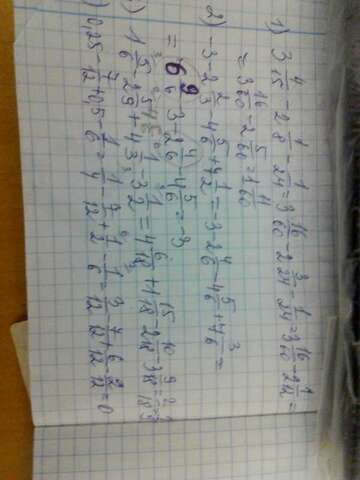 1) 3 4/15 - 2 1/8 - 1/24 = 3 16/60 - 2 3/24 - 1/24 = 3 16/60 - 2 1/12 =
= 3 16/60 - 2 5/60 = 1 11/60
2) -3 - 2 2/3 - 4 5/6 + 4 1/2 = -3 - 2 4/6 - 4 5/6 + 4 3/6 =
= 6 9/6 - 3 + 2 4/6 - 4 5/6 = -3
1 5/6 - 2 5/9 + 4 1/3 - 3 1/2 = 4 6/18 + 1 15/18 - 2 10/18 - 3 9/18 =
) 0,25 - 7/12 + 0,5 - 1/6 = 1/4 - 7/12 + 1/2 - 1/6 = 3/12 - 7/12 + 6/12 - 2/12 = 0